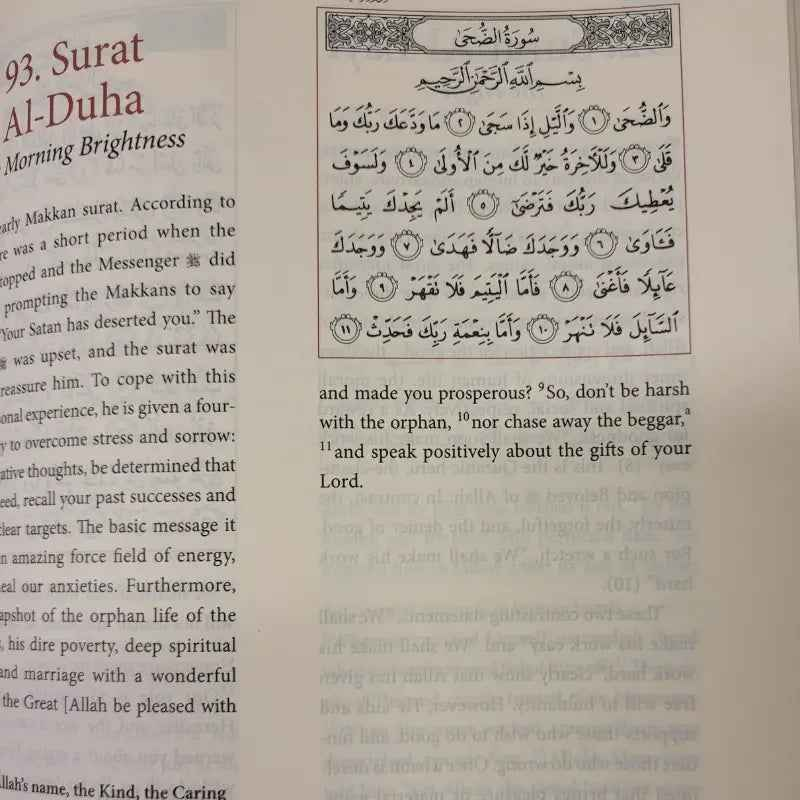 93. Surat
Al-Duha
Morning Brightness
early Makkan surat. According to
was a short period when the
stopped and the Messenger ﷺ did
prompting the Makkans to say
"Your Satan has deserted you." The
ﷺ was upset, and the surat was
reassure him. To cope with this
experience, he is given a four-
to overcome stress and sorrow:
thoughts, be determined that
recall your past successes and
clear targets. The basic message it
amazing force field of energy,
our anxieties. Furthermore,
of the orphan life of the
his dire poverty, deep spiritual
and marriage with a wonderful
the Great [Allah be pleased with
Allah's name, the Kind, the Caring
سُورَةُ الضُّحَىٰ
بِسْمِ ٱللَّهِ ٱلرَّحْمَٰنِ ٱلرَّحِيمِ
وَٱلضُّحَىٰ ١ وَٱلَّيْلِ إِذَا سَجَىٰ ٢ مَا وَدَّعَكَ رَبُّكَ وَمَا
قَلَىٰ ٣ وَلَلْآخِرَةُ خَيْرٌ لَّكَ مِنَ ٱلْأُولَىٰ ٤ وَلَسَوْفَ
يُعْطِيكَ رَبُّكَ فَتَرْضَىٰٓ ٥ أَلَمْ يَجِدْكَ يَتِيمًا
فَـَٔاوَىٰ ٦ وَوَجَدَكَ ضَآلًّا فَهَدَىٰ ٧ وَوَجَدَكَ
عَآئِلًا فَأَغْنَىٰ ٨ فَأَمَّا ٱلْيَتِيمَ فَلَا تَقْهَرْ ٩ وَأَمَّا
ٱلسَّآئِلَ فَلَا تَنْهَرْ ١٠ وَأَمَّا بِنِعْمَةِ رَبِّكَ فَحَدِّثْ ١١
and made you prosperous? ⁹So, don't be harsh
with the orphan, ¹⁰nor chase away the beggar,ᵃ
¹¹and speak positively about the gifts of your
Lord.